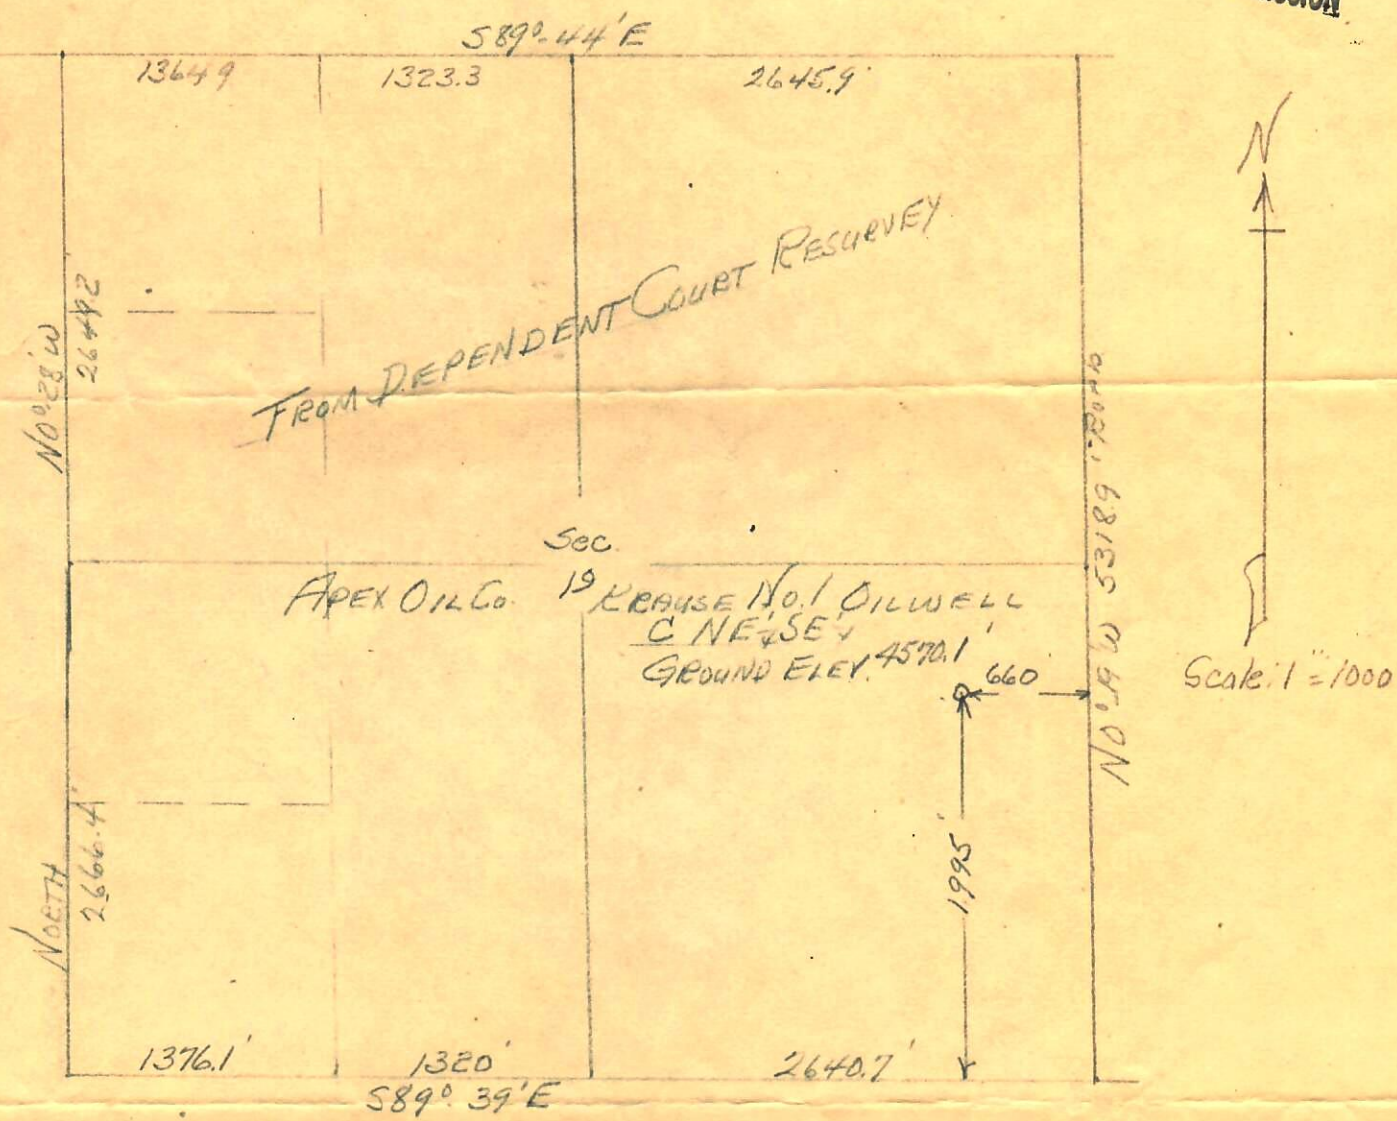 S89°-44'E
1364.9
1323.3
2645.9'
N
FROM DEPENDENT COURT RESURVEY
N0°-28'W
2649.2'
N0°-19'W 5318.9'
Sec.
19
APEX OIL Co.
KRAUSE No.1 OILWELL
C NE¼SE¼
GROUND ELEV. 4570.1'
660'
Scale: 1"=1000
1995'
NORTH
2666.4'
1376.1'
1320'
2640.7'
S89°-39'E